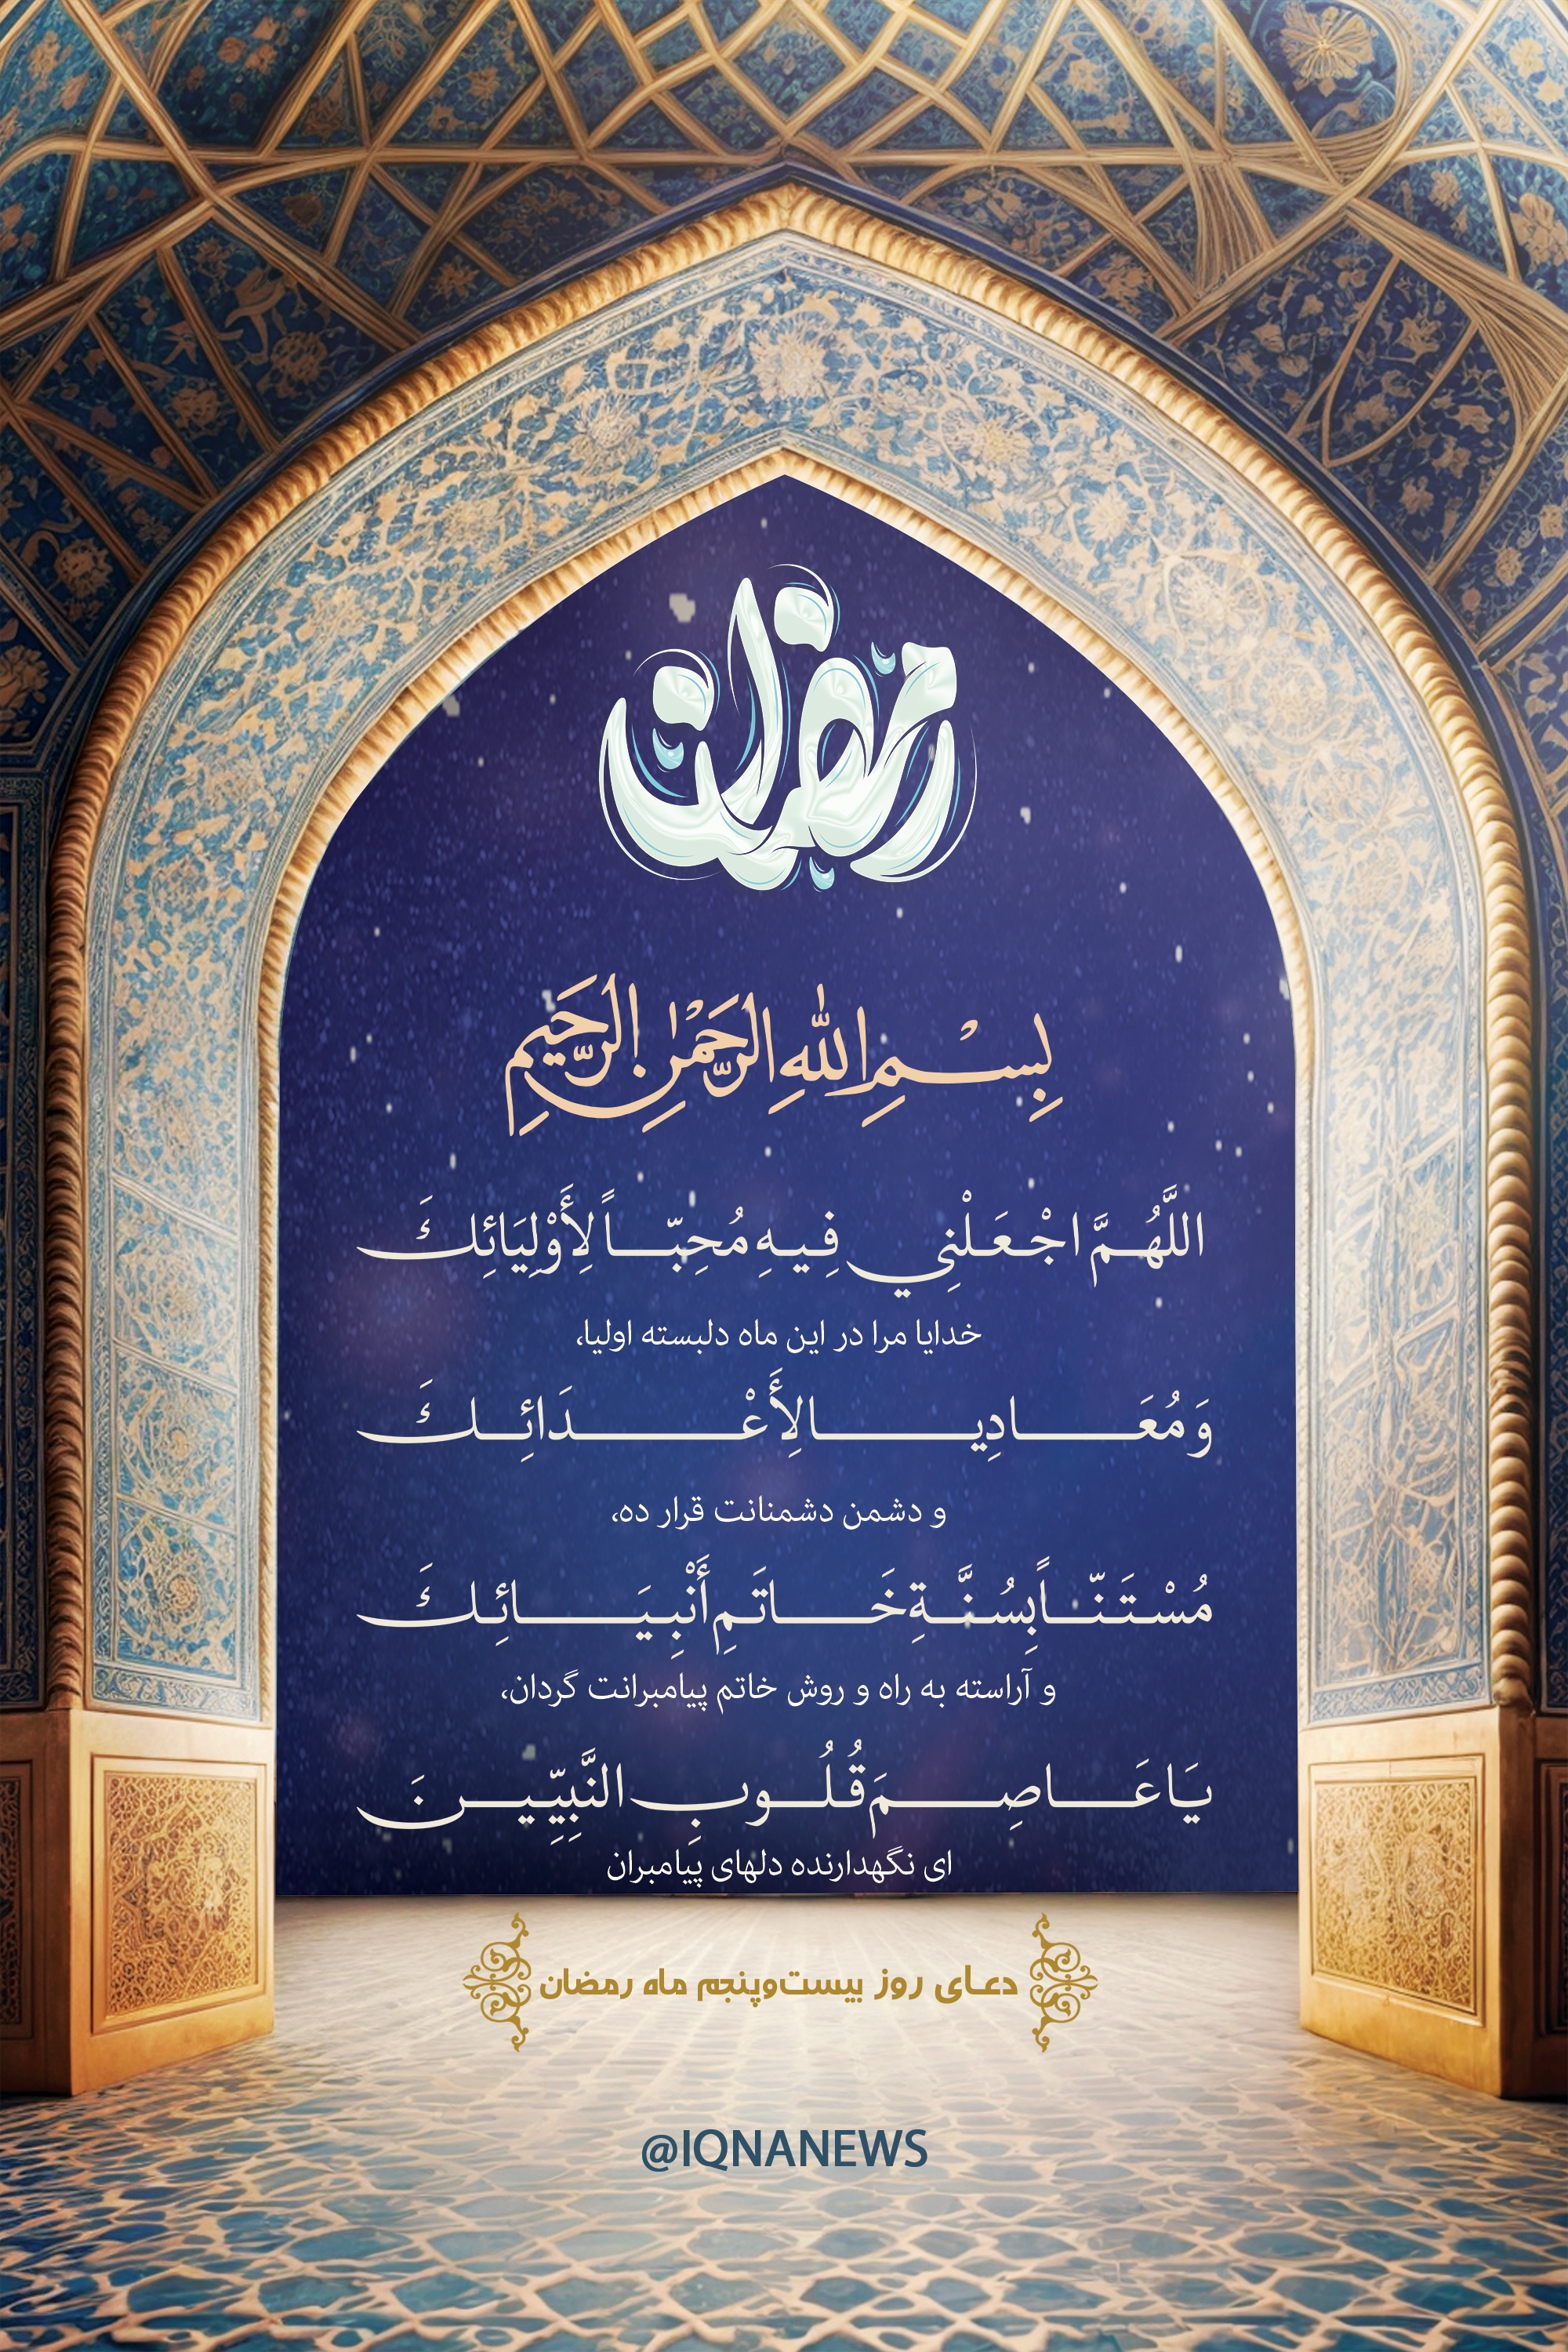 رمضان
بِسْمِ اللهِ الرَّحْمٰنِ الرَّحِيمِ
اللَّهُمَّ اجْعَلْنِي فِيهِ مُحِبّاً لِأَوْلِيَائِكَ
خدایا مرا در این ماه دلبسته اولیا،
وَ مُعَادِيا لِأَعْدَائِكَ
و دشمن دشمنانت قرار ده،
مُسْتَنّاً بِسُنَّةِ خَاتَمِ أَنْبِيَائِكَ
و آراسته به راه و روش خاتم پیامبرانت گردان،
يَا عَاصِمَ قُلُوبِ النَّبِيِّينَ
ای نگهدارنده دلهای پیامبران
دعای روز بیست‌وپنجم ماه رمضان
@IQNANEWS